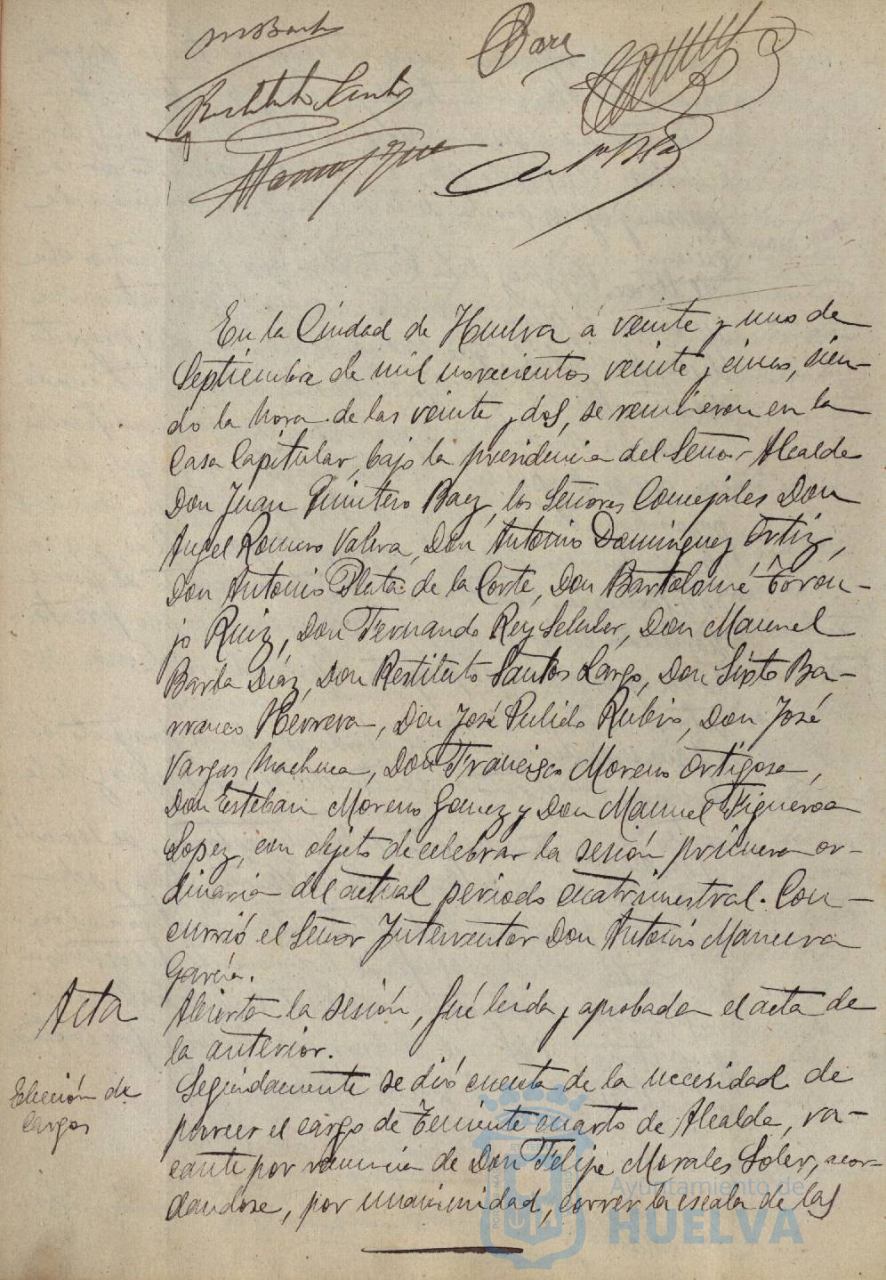 MBarba
Restituto Santos
En la Ciudad de Huelva á veinte y uno de
Septiembre de mil novecientos veinte y cinco, sien-
do la hora de las veinte y dos, se reunieron en la
Casa Capitular, bajo la presidencia del Señor Alcalde
Don Juan Quintero Baez, los Señores Concejales Don
Angel Romero Valera, Don Antonio Dominguez Ortiz,
Don Antonio Plata de la Corte, Don Bartolomé Toron-
jo Ruiz, Don Fernando Rey Don Manuel
Barba Díaz, Don Restituto Santos Largo, Don Sixto Ba-
rranco Herrera, Don José Pulido Rubio, Don José
Vargas Machuca, Don Francisco Moreno Ortigosa,
Don Esteban Moreno Gomez y Don Manuel Figueroa
Lopez, con objeto de celebrar la sesión primera or-
dinaria del actual periodo cuatrimestral. Con-
currió el Señor Interventor Don Antonio Manuera
García.
Acta
Abierta la sesión, fué leida y aprobada el acta de
la anterior.
Elección de
cargos
Seguidamente se dió cuenta de la necesidad de
proveer el cargo de Teniente cuarto de Alcalde, va-
cante por renuncia de Don Felipe Morales Soler, acor-
dandose, por unanimidad, correr la escala de las
Ayuntamiento de
HUELVA